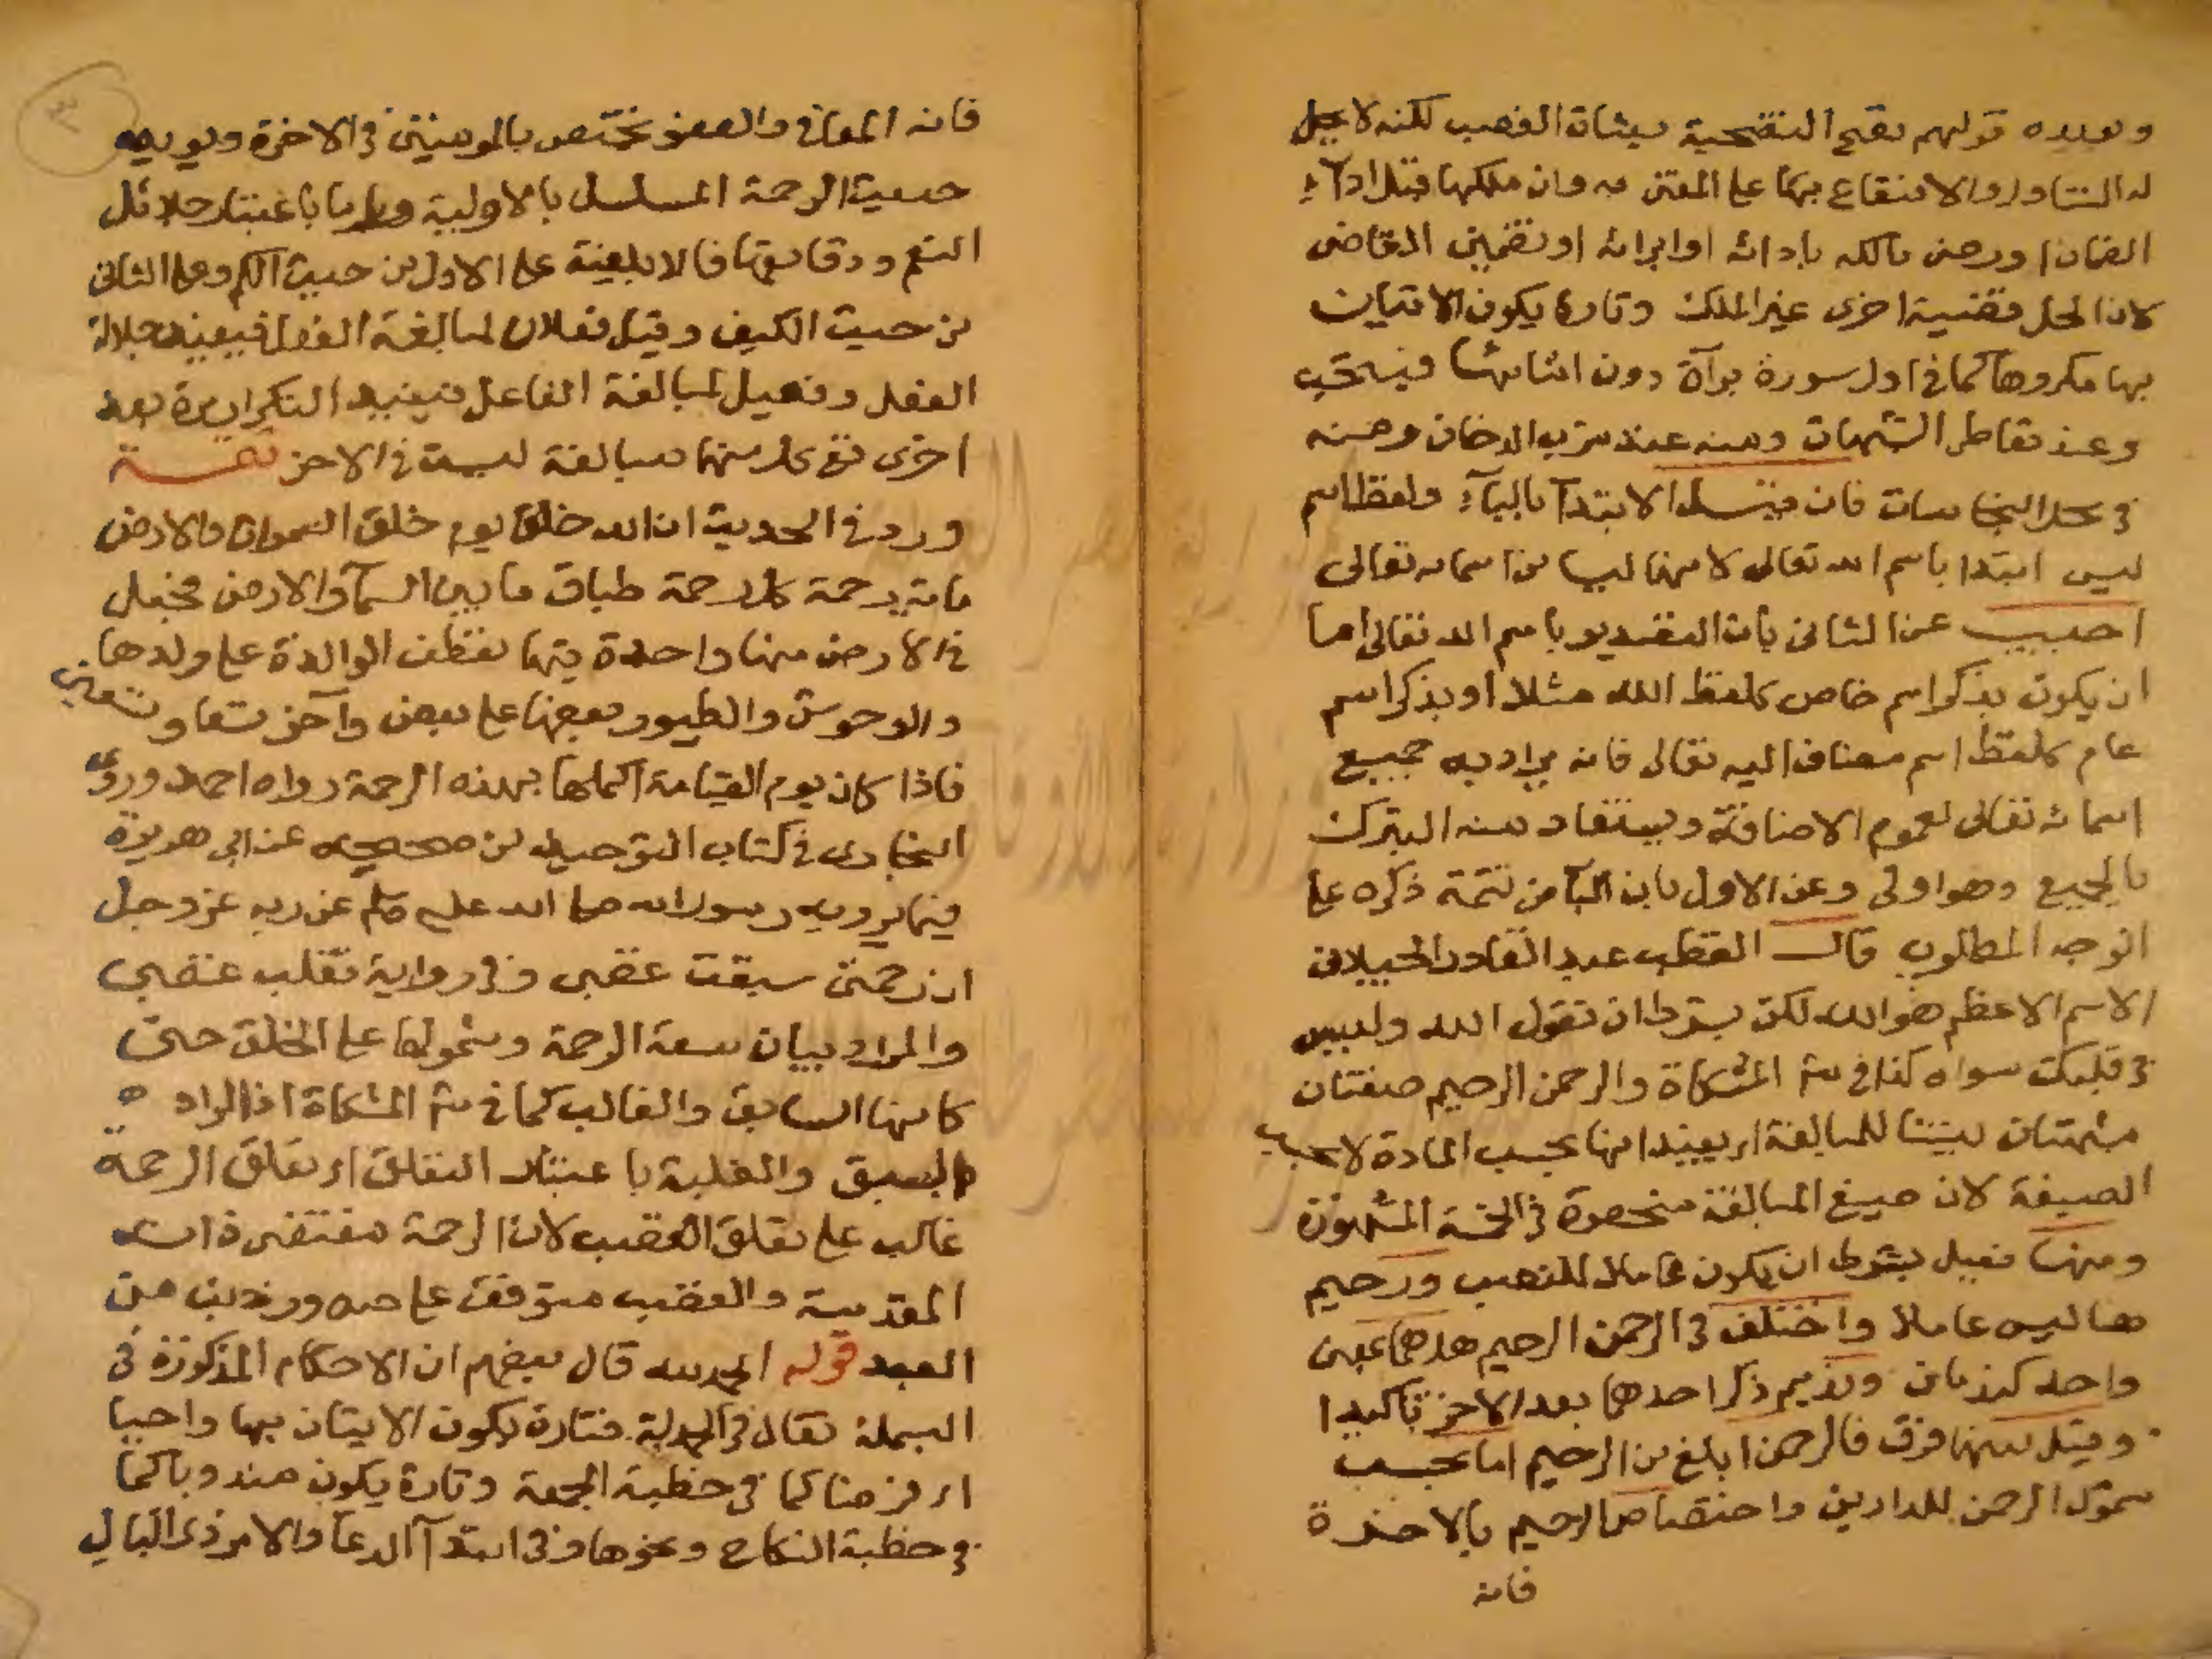 ويؤيده قولهم تصح التضحية بشاة الغصب لكنه لا يحل
له التناول والانتفاع بها على المفتى به وان ملكها قبل اداء
الضمان او رضى مالكه بادائه او ابرائه او تضمين القاضى
لان الحل قضية اخرى غير الملك وتارة يكون الاتيان
بها مكروها كما فى اول سورة براة دون اثنائها فيستحب
وعند تعاطى الشبهات ومنه عند شرب الدخان
فى محل النجاسات فان قيل الابتدا بالباء ولفظ اسم
ليس ابتدا باسم الله تعالى لانهما ليسا من اسمائه تعالى
اجيب عن الثانى بان التصدير باسم الله تعالى اما
ان يكون بذكر اسم خاص كلفظ الله مثلا او بذكر اسم
عام كلفظ اسم مضاف اليه تعالى فانه يراد به جميع
اسمائه تعالى لعموم الاضافة ويستفاد منه التبرك
بالجميع وهو اولى وعن الاول بان البا من تتمة ذكره على
الوجه المطلوب قال القطب عبد القادر الجيلانى
الاسم الاعظم هو الله لكن بشرط ان تقول الله وليس
فى قلبك سواه كذا فى شر المشكاة والرحمن الرحيم صفتان
مشبهتان بنيتا للمبالغة اى يفيدانها بحسب المادة لا بحسب
الصيغة لان صيغ المبالغة منحصرة فى الخمسة المشهورة
ومنها فعيل بشرط ان يكون عاملا للنصب ورحيم
هنا ليس عاملا واختلف فى الرحمن الرحيم هل هما بمعنى
واحد كندمان ونديم ذكر احدهما بعد الاخر تاكيدا
وقيل بينهما فرق فالرحمن ابلغ من الرحيم اما بحسب
شمول الرحمن للدارين واختصاص الرحيم بالاخرة
فانه
فانه المعافى والعفو يختص بالمومنين فى الاخرة ويويده
حديث الرحمة المسلسل بالاولية واما باعتبار جلائل
النعم ودقايقها فالابلغية على الاول من حيث الكم وعلى الثانى
من حيث الكيف وقيل فعلان لمبالغة الفعل فيفيد جلالة
الفعل وفعيل لمبالغة الفاعل فيفيد التكرار مرة بعد
اخرى فى كل منهما مبالغة ليست فى الاخر تتمة
ورد فى الحديث ان الله خلق يوم خلق السموات والارض
مائة رحمة كل رحمة طباق ما بين السما والارض فجعل
فى الارض منها واحدة فبها تعطف الوالدة على ولدها
والوحوش والطيور بعضها على بعض واخر تسعا وتسعين
فاذا كان يوم القيامة اكملها بهذه الرحمة رواه احمد وروى
البخارى فى كتاب التوحيد من صحيحه عن ابى هريرة
فيما يرويه رسول الله صلى الله عليه وسلم عن ربه عز وجل
ان رحمتى سبقت غضبى وفى رواية تغلب غضبى
والمراد بيان سعة الرحمة وشمولها على الخلق حتى
كانها السابق والغالب كما فى شر المشكاة اذ المراد
بالسبق والغلبة باعتبار التعلق اى تعلق الرحمة
غالب على تعلق الغضب لان الرحمة مقتضى ذاته
المقدسة والغضب متوقف على من
العبد قوله الحمد لله قال بعضهم ان الاحكام المذكورة فى
البسملة تقال فى الحمدلة فتارة يكون الاتيان بها واجبا
اى فرضا كما فى خطبة الجمعة وتارة يكون مندوبا كما
فى خطبة النكاح ونحوها وفى ابتدا الدعا والامر ذى البال